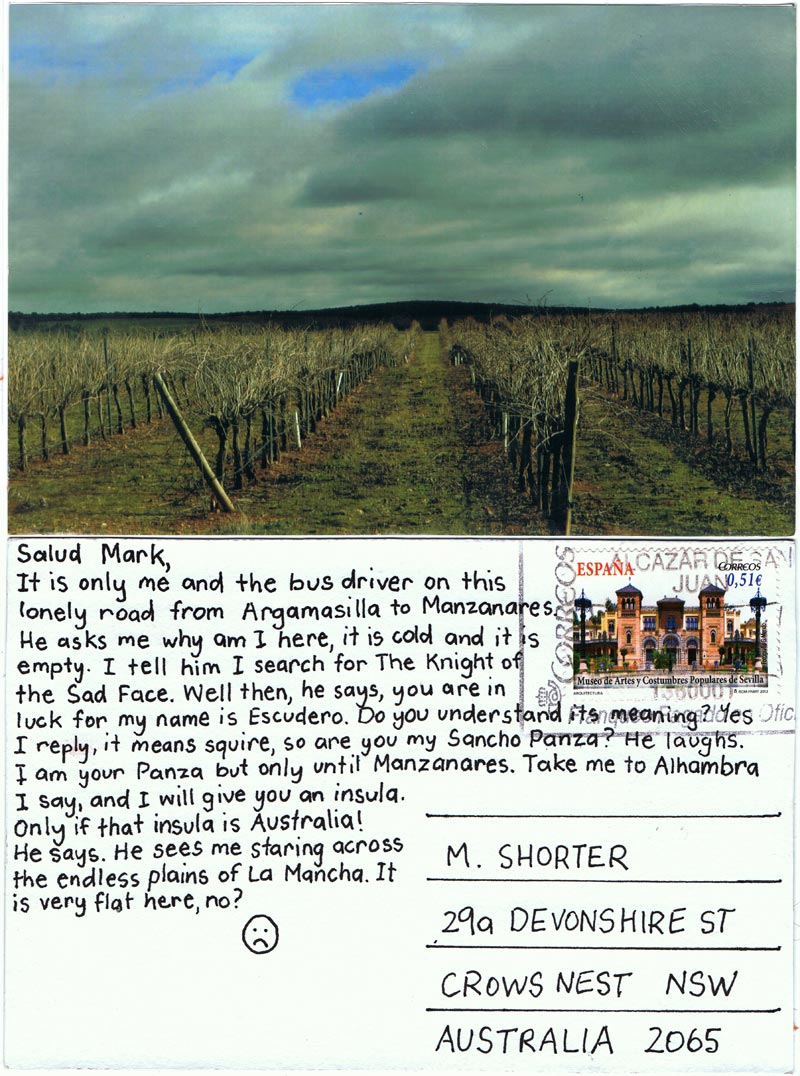 Salud Mark,
It is only me and the bus driver on this
lonely road from Argamasilla to Manzanares.
He asks me why am I here, it is cold and it is
empty. I tell him I search for The Knight of
the Sad Face. Well then, he says, you are in
luck for my name is Escudero. Do you understand its meaning? Yes
I reply, it means squire, so are you my Sancho Panza? He laughs.
I am your Panza but only until Manzanares. Take me to Alhambra
I say, and I will give you an insula.
Only if that insula is Australia!
He says. He sees me staring across
the endless plains of La Mancha. It
is very flat here, no?
CORREOS
ALCAZAR DE SAN
JUAN
ESPAÑA
CORREOS
0,51€
Museo de Artes y Costumbres Populares de Sevilla
ARQUITECTURA
Franqueo Pagado en Ofic
M. SHORTER
29a DEVONSHIRE ST
CROWS NEST NSW
AUSTRALIA 2065